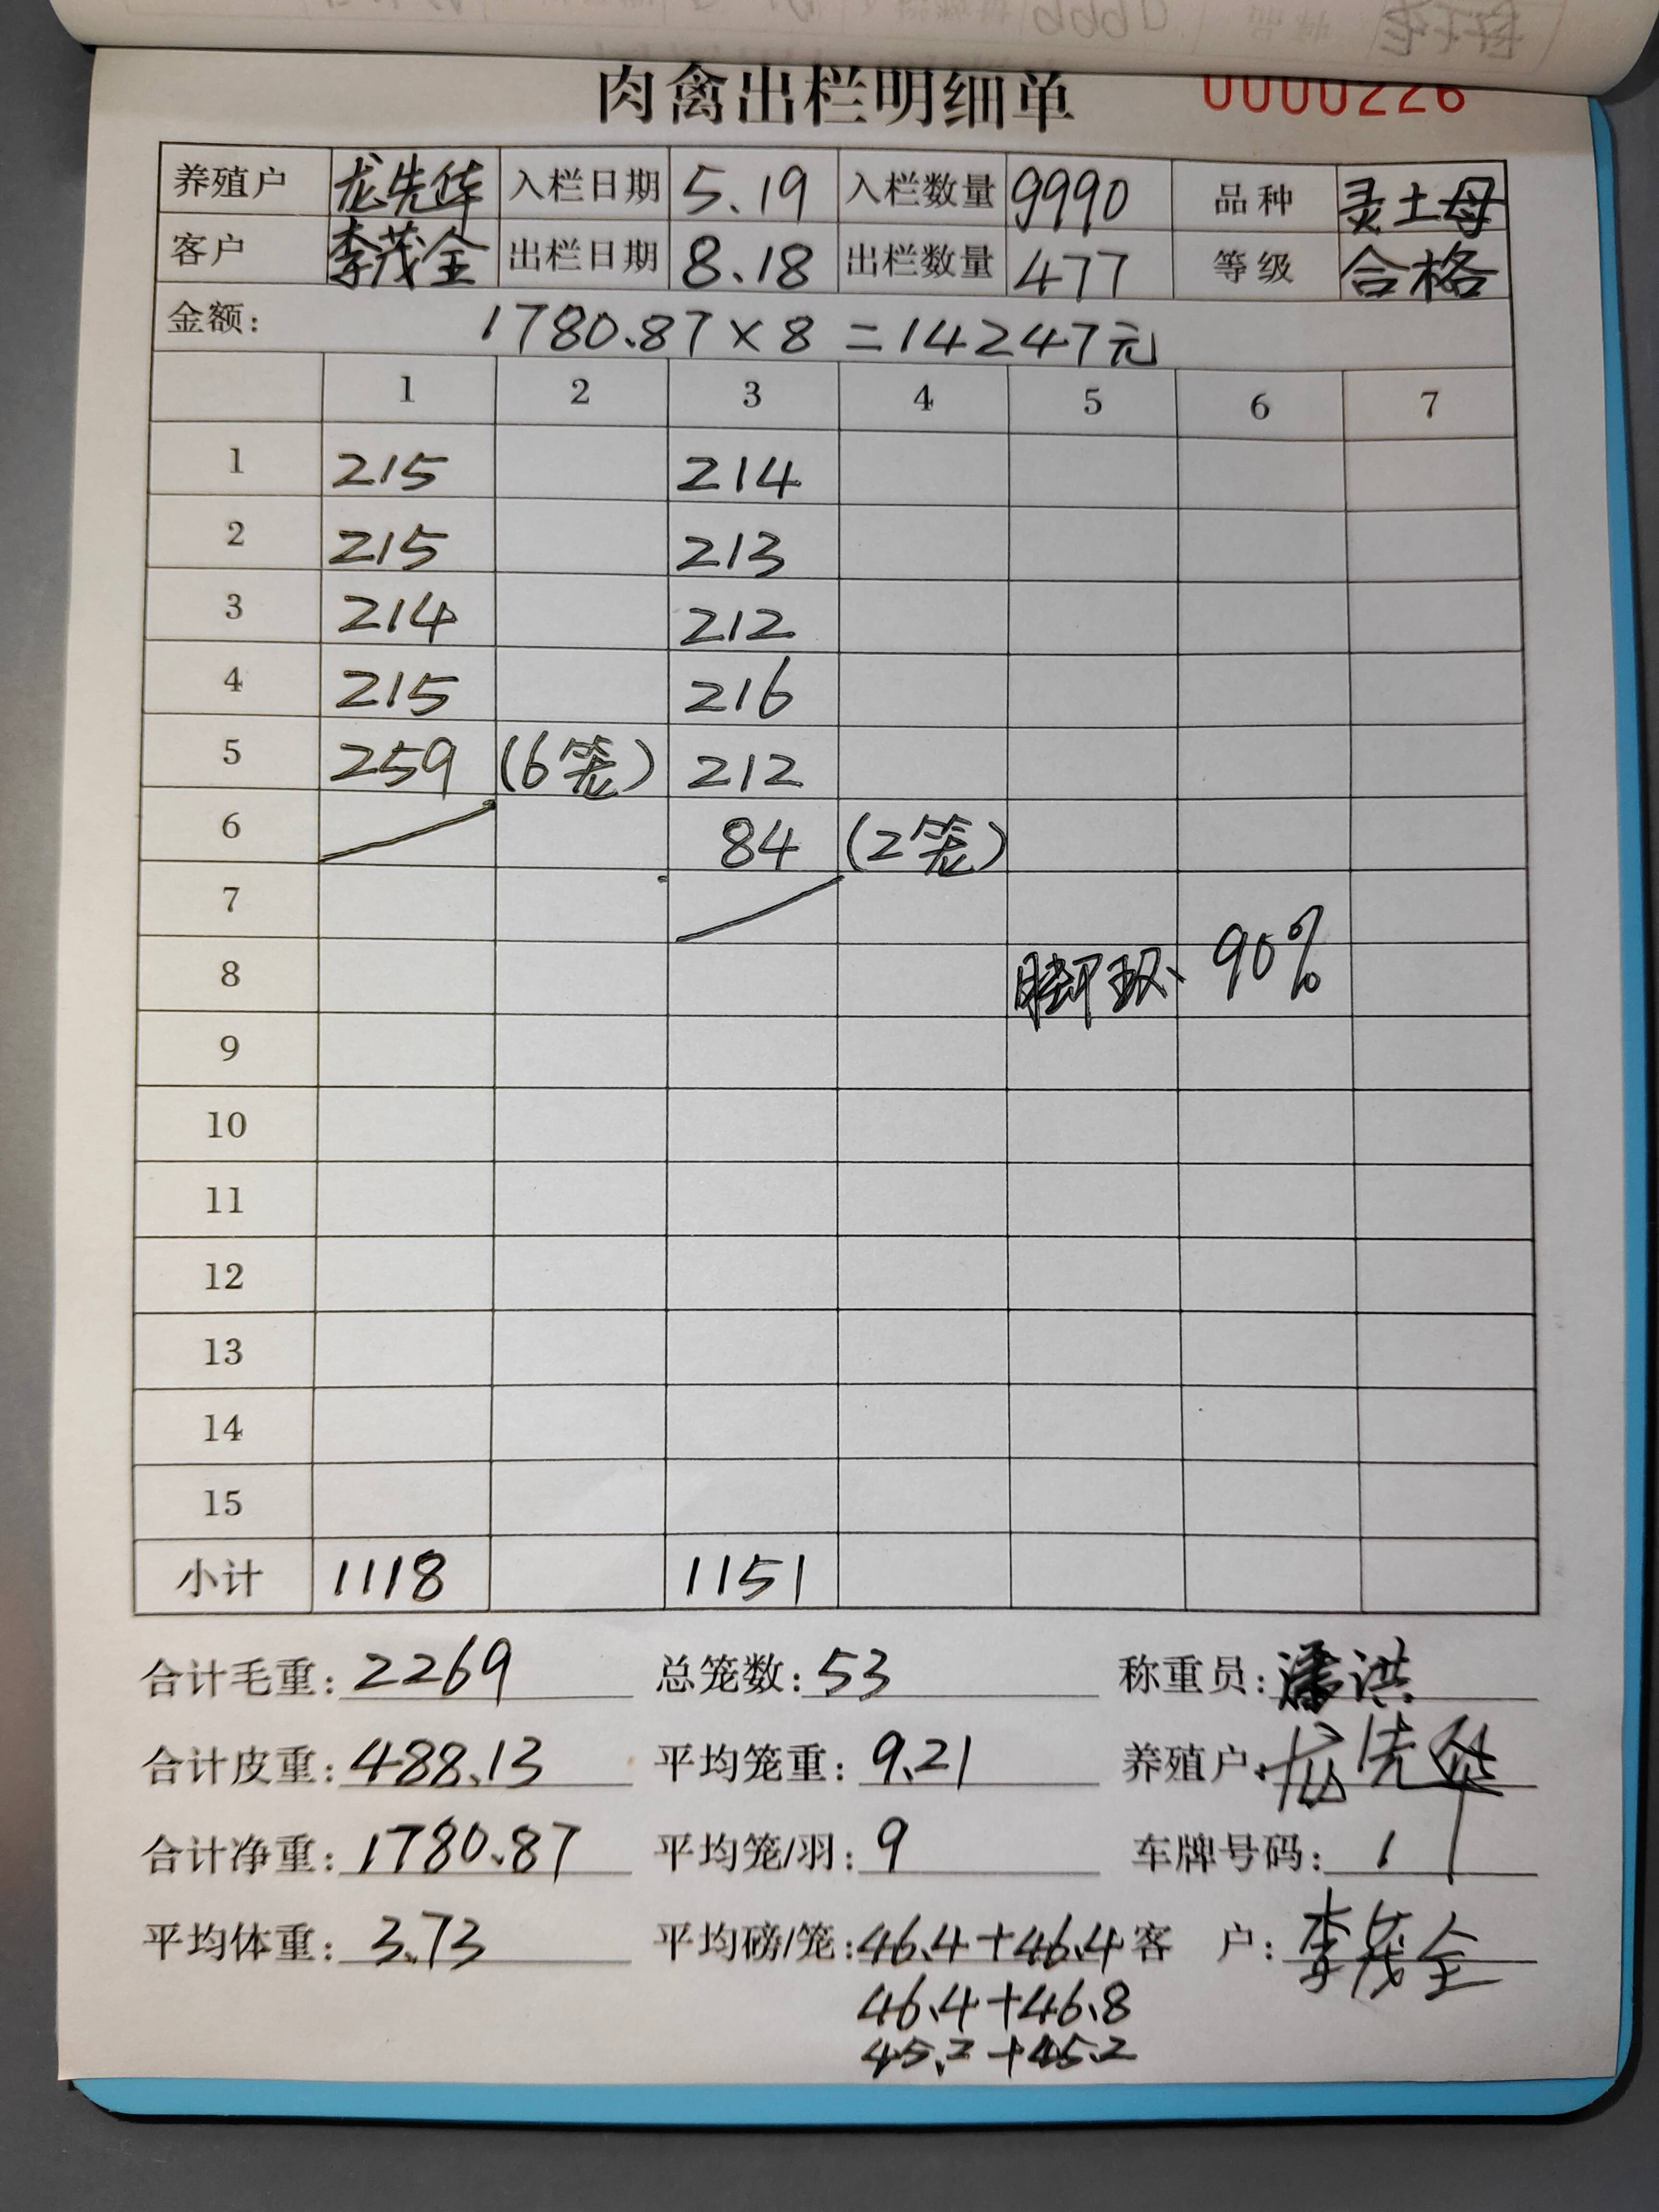 肉禽出栏明细单 0000226
养殖户 龙先华 入栏日期 5.19 入栏数量 9990 品种 灵土母
客户 李茂全 出栏日期 8.18 出栏数量 477 等级 合格
金额: 1780.87×8=14247元
1 2 3 4 5 6 7
1 215 214
2 215 213
3 214 212
4 215 216
5 259 (6笼) 212
6 84 (2笼)
7
8 脚环、90%
9
10
11
12
13
14
15
小计 1118 1151
合计毛重: 2269 总笼数: 53 称重员: 潘洪
合计皮重: 488.13 平均笼重: 9.21 养殖户: 龙先华
合计净重: 1780.87 平均笼/羽: 9 车牌号码: 1
平均体重: 3.73 平均磅/笼: 46.4+46.4 客 户: 李茂全
46.4+46.8
45.2+45.2